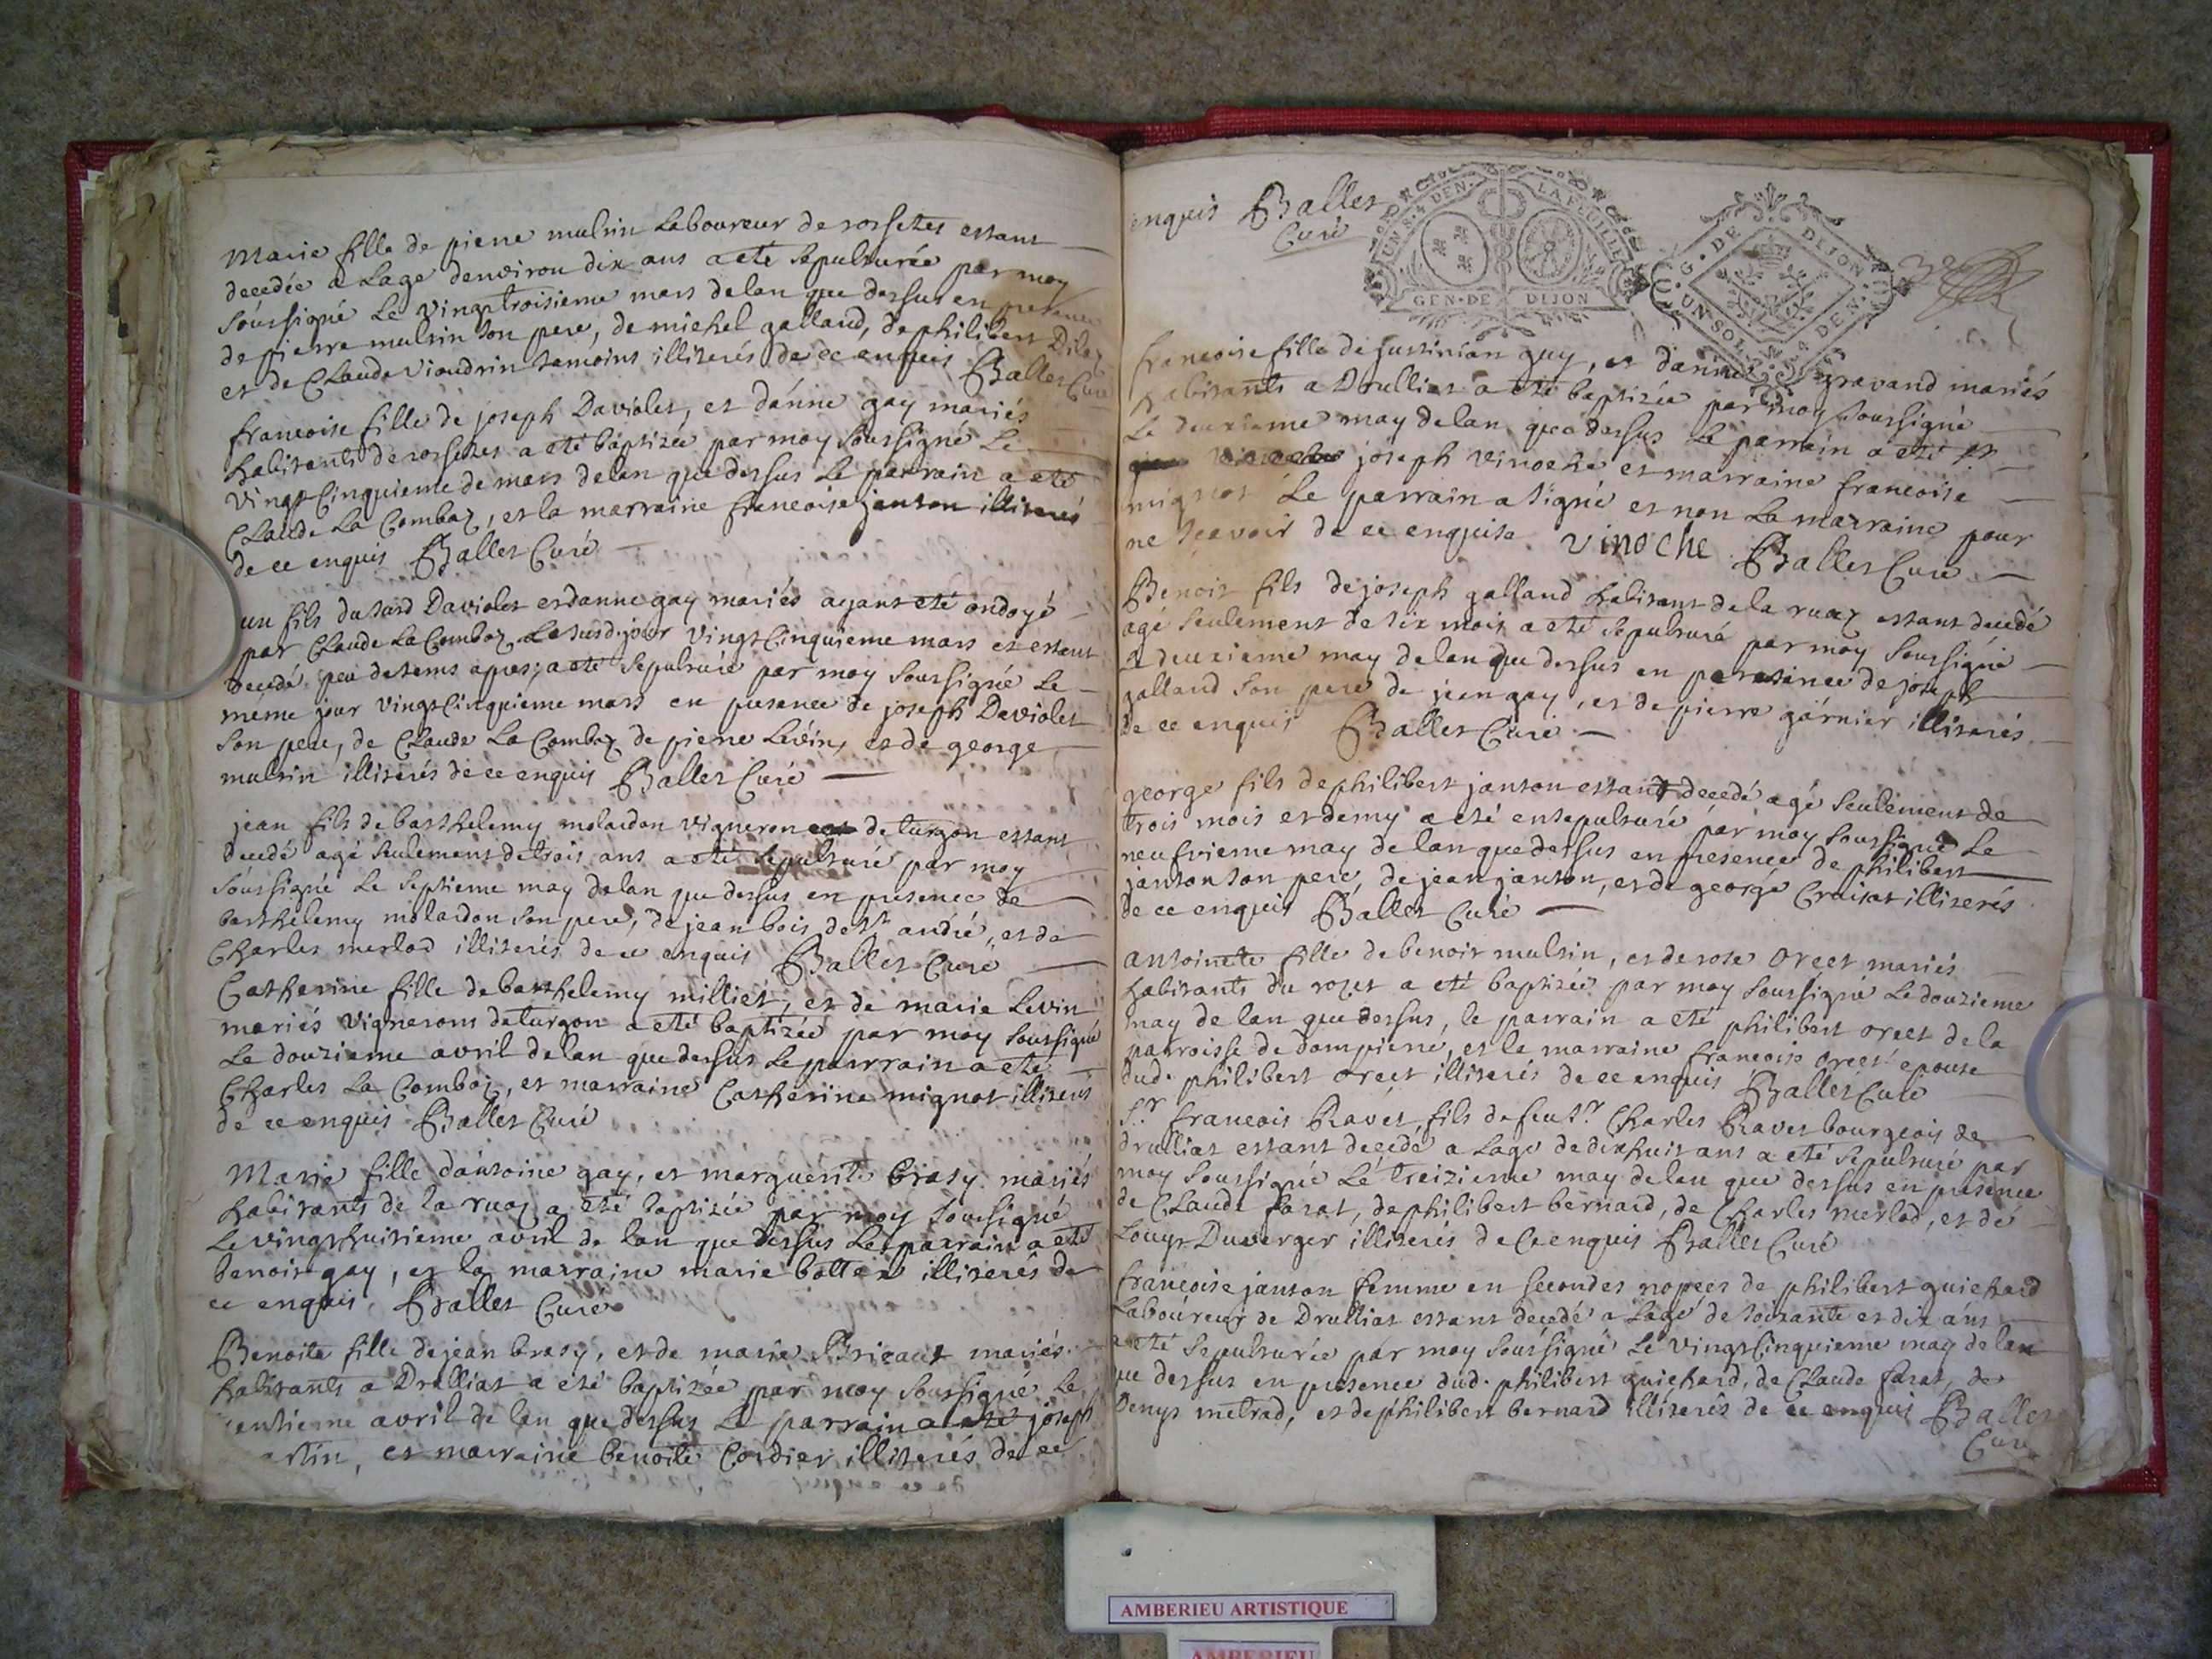 Marie fille de pierre mulsin Laboureur de rossetes estant
decedée a Lage denviron dix ans a eté sepulturée par moy
soussigné Le vingttroisieme mars de lan que dessus en presence
de pierre mulsin son pere, de michel galland, de philibert
et de Claude Viondrin temoins illiterés de ce enquis Ballet Curé
francoise fille de joseph Daviolet, et danne gay mariés
habitants de rossetes a eté baptizée par moy soussigné Le
vingtCinquieme de mars de lan que dessus Le parrain a eté
Claude La Combaz, et la marraine francoise janton illiterés
de ce enquis Ballet Curé
un fils dudard Daviolet et danne gay mariés ayant eté ondoyé
par Claude La Combaz Le susd. jour vingtCinquieme mars et estant
decedé peu de tems apres, a eté sepulturé par moy soussigné Le
même jour vingtCinquieme mars en presence de joseph Daviolet
son pere, de Claude La Combaz de pierre Levin, et de george
mulsin illiterés de ce enquis Ballet Curé
jean fils de barthelemy molardon vigneron de turgon estant
decedé agé seulement de trois ans a eté sepulturé par moy
soussigné Le septieme may de lan que dessus en presence de
barthelemy molardon son pere, de jean bois de st andré, et de
Charles merlod illiterés de ce enquis Ballet Curé
Catherine fille de barthelemy milliet, et de marie Levin
mariés vignerons de turgon a eté baptizée par moy soussigné
Le douzieme avril de lan que dessus Le parrain a eté
Charles La Combaz, et marraine Catherine mignot illiterés
de ce enquis Ballet Curé
Marie fille dantoine gay, et marguerite brasy mariés
habitants de la ruaz a eté baptizée par moy soussigné
Le vingthuitieme avril de lan que dessus Le parrain a eté
benoit gay, et la marraine marie bottex illiterés de
ce enquis Ballet Curé
Benoite fille de jean brasy, et de marie Bricaut mariés
habitants a Drulliat a eté baptizée par moy soussigné Le
entieme avril de lan que dessus Le parrain a eté joseph
artin, et marraine benoite Cordier illiterés de ce
enquis Ballet
Curé
UN S. 4 DEN. LA FEUILLE
GEN. DE DIJON
G. DE DIJON
UN SOL 4 DEN.
francoise fille de justinian guy, et danne gravand mariés
habitants a Drulliat a eté baptizée par moy soussigné
Le deuxieme may de lan que dessus Le parrain a eté
joseph vinoche et marraine francoise
mignot Le parrain a signé et non La marraine pour
ne scavoir de ce enquise. vinoche Ballet Curé
Benoit fils de joseph galland habitant de la ruaz estant decedé
agé seulement de six mois a eté sepulturé par moy soussigné
Le deuxieme may de lan que dessus en presence de joseph
galland son pere de jean gay, et de pierre garnier illiterés
de ce enquis Ballet Curé
george fils de philibert janton estant decedé agé seulement de
trois mois et demy a eté ensepulturé par moy soussigné Le
neufvieme may de lan que dessus en presence de philibert
janton son pere, de jean janton, et de george Croisat illiterés
de ce enquis Ballet Curé
antoinete fille de benoit mulsin, et de rose orcet mariés
habitants du rozet a eté baptizée par moy soussigné Le douzieme
may de lan que dessus, le parrain a eté philibert orcet de la
parroisse de dompierre, et le marraine francoise orcet epouse
dud. philibert orcet illiterés de ce enquis Ballet Curé
Sr. francois Ravet, fils de feu Sr. Charles Ravet bourgeois de
drulliat estant decedé a Lage de dixhuit ans a eté sepulturé par
moy soussigné Le treizieme may de lan que dessus en presence
de Claude farat, de philibert bernard, de Charles merlod, et de
Louys Duverger illiterés de ce enquis Ballet Curé
francoise janton femme en secondes nopces de philibert guichard
Laboureur de Drulliat estant decedé a Lage de soixante et dix ans
a eté sepulturée par moy soussigné Le vingtCinquieme may de lan
que dessus en presence dud. philibert guichard, de Claude farat, de
Denys metrad, et de philibert bernard illiterés de ce enquis Ballet
Curé
AMBERIEU ARTISTIQUE
AMBERIEU